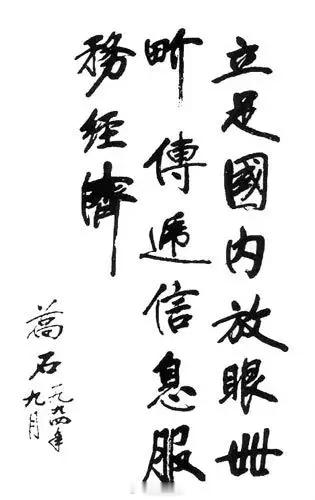 立足國内放眼世
界傳遞信息服
務經濟
萬石
一九九四年
九月